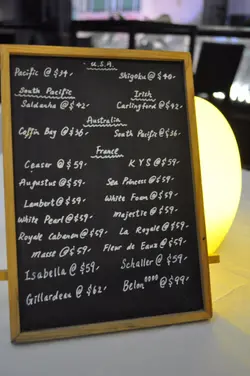 U.S.A
Pacific @ $34- Shigoku @ $40-
South Pacific Irish
Saldanha @ $42- Carlingford @ $42-
Australia
Coffin Bay @ $36- South Pacific @ $36-
France
Ceaser @ $59- KYS @ $59-
Augustus @ $59- Sea Princess @ $59-
Lambert @ $59- White Foam @ $59-
White Pearl @ $59- Majestic @ $59-
Royale Cabanon @ $59- La Royale @ $59-
Masse @ $59- Fleur de Eauz @ $59-
Isabella @ $59- Schaller @ $59-
Gillardeau @ $62- Belon 0000 @ $99-